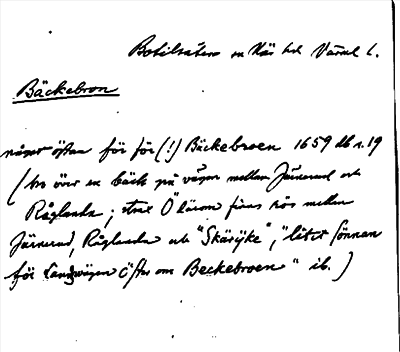 Botilsäters sn När hd Värml l.
Bäckebron
något östan för för (!) Bäckebroen 1659 db s. 19
(bro över en bäck på vägen mellan Järnerud och
Råglanda; strax Ö därom finns rös mellan
Järnerud, Råglanda och "Skärijke", "litet sönnan
för Landzwägen Öster om Beckebroen" ib.)